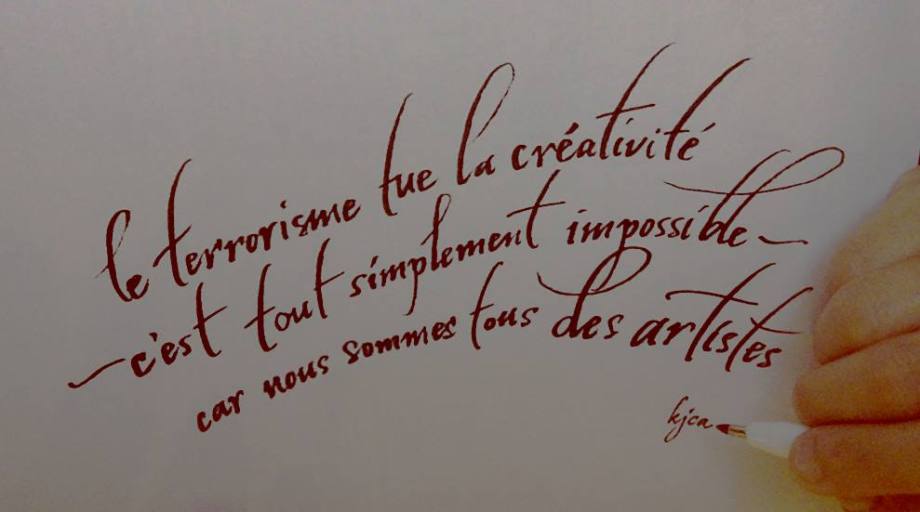 le terrorisme tue la créativité
– c'est tout simplement impossible –
car nous sommes tous des artistes
kjca